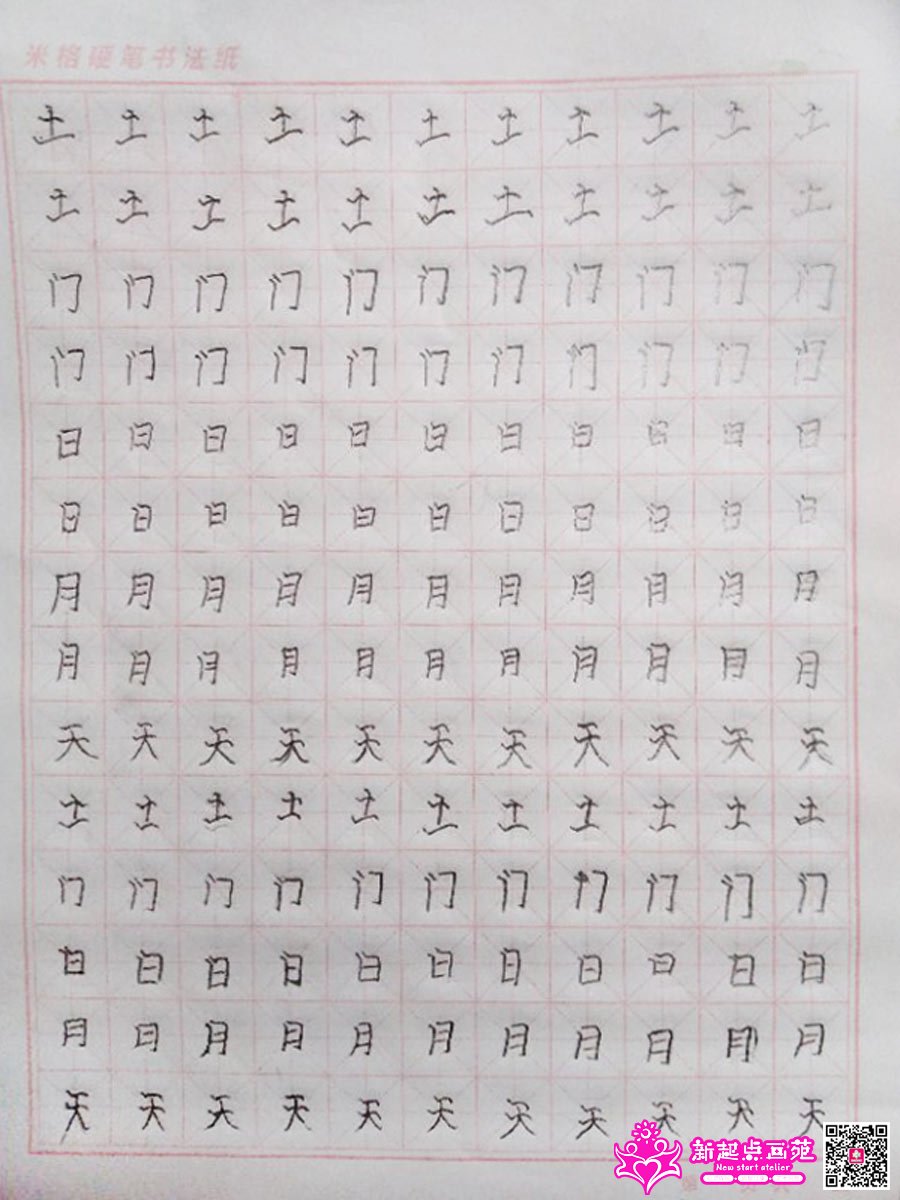 米格硬笔书法纸
土土土土土土土土土土土
土土土土土土土土土土土
门门门门门门门门门门门
门门门门门门门门门门门
日日日日日日日日日日日
日日日日日日日日日日日
月月月月月月月月月月月
月月月月月月月月月月月
天天天天天天天天天天天
土土土土土土土土土土土
门门门门门门门门门门门
日日日日日日日日日日日
月月月月月月月月月月月
天天天天天天天天天天天
新起点画苑
New start atelier